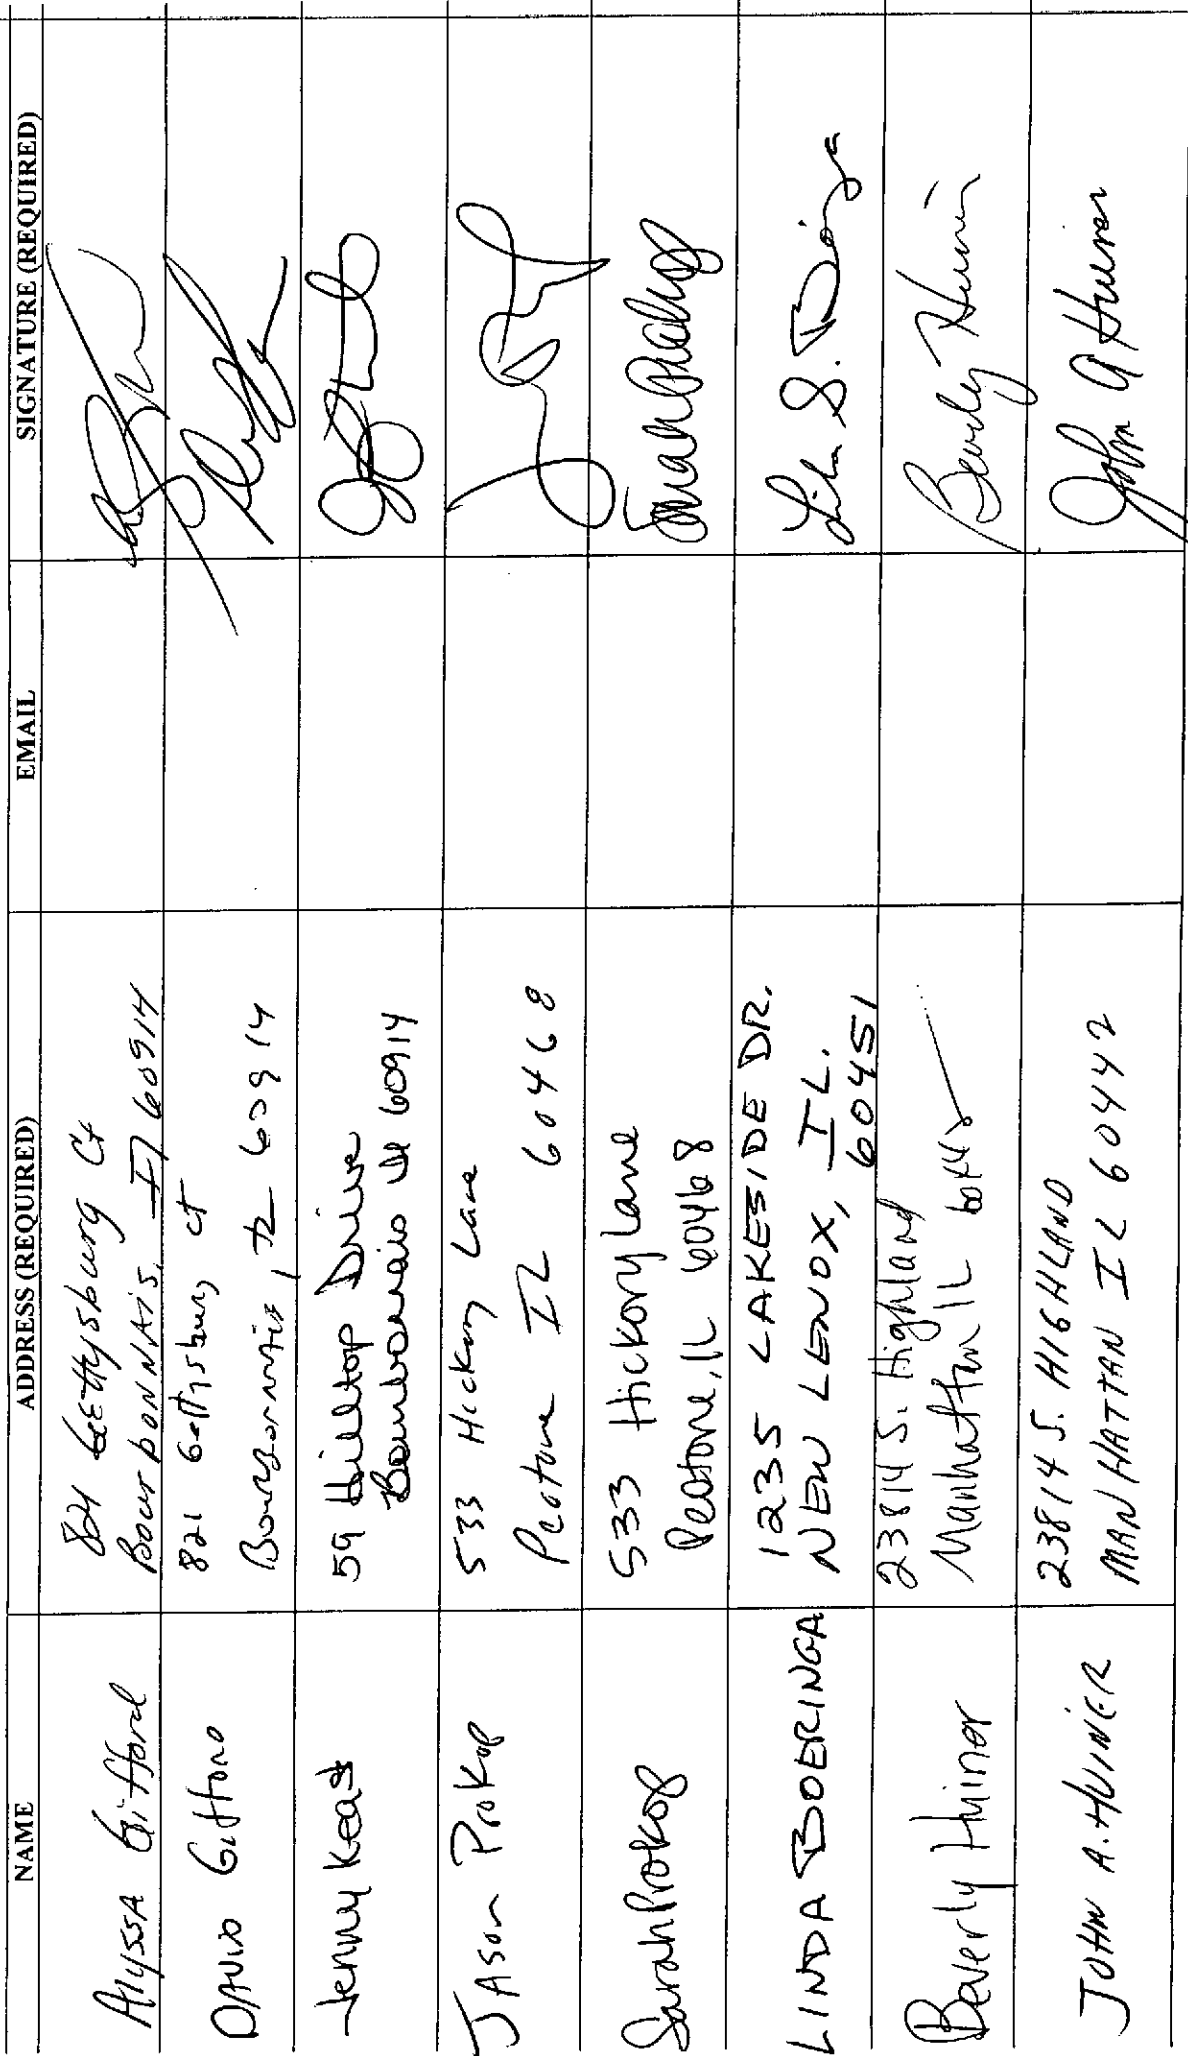 NAME ADDRESS (REQUIRED) EMAIL SIGNATURE (REQUIRED)
Alyssa Gifford
821 Gettysburg Ct
Bourbonnais, Il 60914
David Gifford
821 Gettysburg ct
Bourbonnais, IL 60914
Jenny Keast
59 Hilltop Drive
Bourbonnais Il 60914
Jason Prokop
533 Hickory Lane
Peotone IL 60468
Sarah Prokop
533 Hickory Lane
Peotone, IL 60468
Sarah Prokop
LINDA BOERINGA
1235 LAKESIDE DR.
NEW LENOX, IL.
60451
Beverly Huiner
23814 S. Highland
Manhattan IL 60442
Beverly Huiner
JOHN A. HUINER
23814 S. HIGHLAND
MANHATTAN IL 60442
John A Huiner